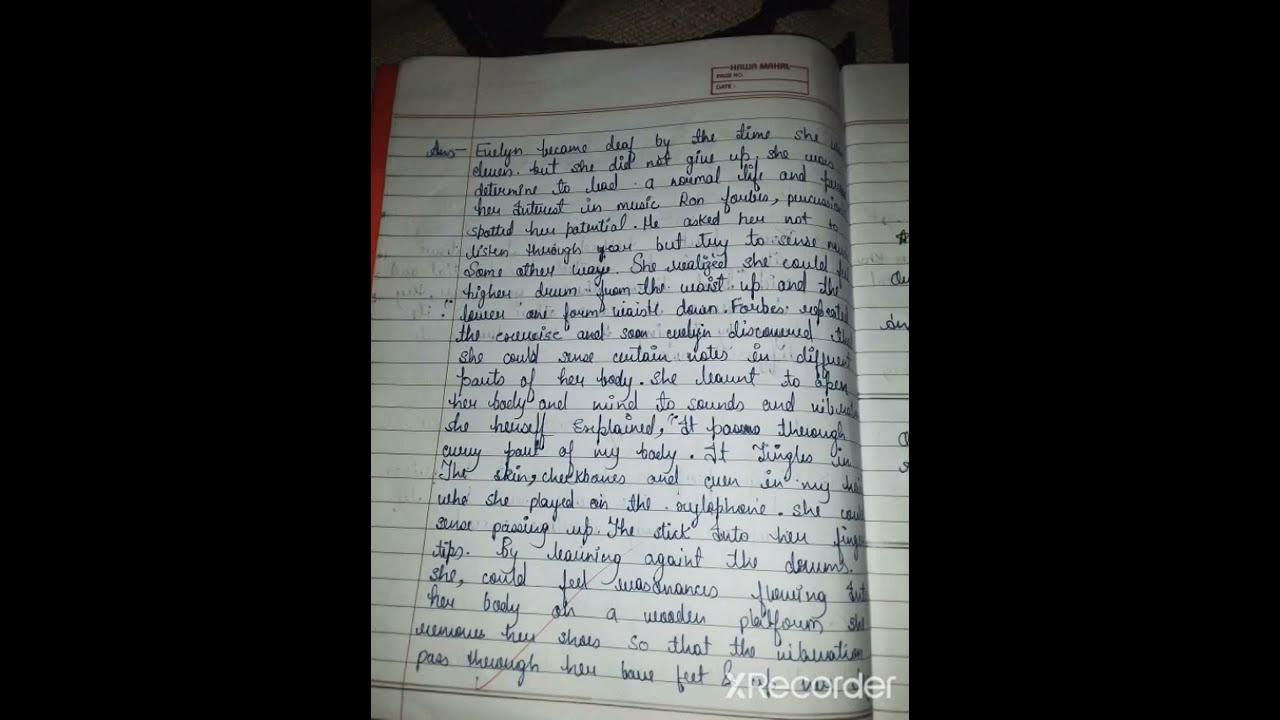 HAWA MAHAL
PAGE NO.
DATE :
Ans- Evelyn became deaf by the time she
eleven. but she did not give up. she was
determine to lead a normal life and
her Interest in music Ron forbes, percussion
spotted her potential. He asked her not to
listen through year but try to sense
Some other ways. She realized she could
higher drum from the waist up and the
lower one form waist down. Forbes repeated
the exercise and soon evelyn discovered
she could sense certain notes in different
parts of her body. she learnt to open
her body and mind to sounds and
she herself Explained, "It passes through
every part of my body. It Tingles in
The skin, cheekbones and even in my
she played on the xylophone. she
sense passing up. The stick Into her finger
tips. By leaning againt the drums.
She, could feel flowing
her body on a wooden platform she
removes her shoes so that the vibration
pass through her bare feet &
XRecorder